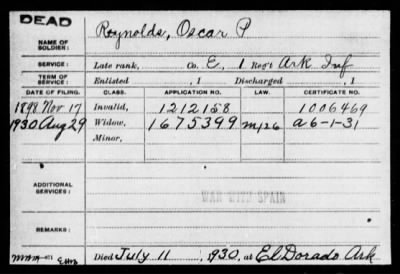 DEAD
NAME OF SOLDIER: Reynolds, Oscar P
SERVICE: Late rank, Co. E, 1 Reg't Ark Inf
TERM OF SERVICE: Enlisted , 1 Discharged , 1
DATE OF FILING. CLASS. APPLICATION NO. LAW. CERTIFICATE NO.
1898 Nov 17 Invalid, 1212158 1006469
1930 Aug 29 Widow, 1675399 M126 a 6-1-31
Minor,
ADDITIONAL SERVICES:
WAR WITH SPAIN
REMARKS:
Died July 11, 1930, at El Dorado Ark